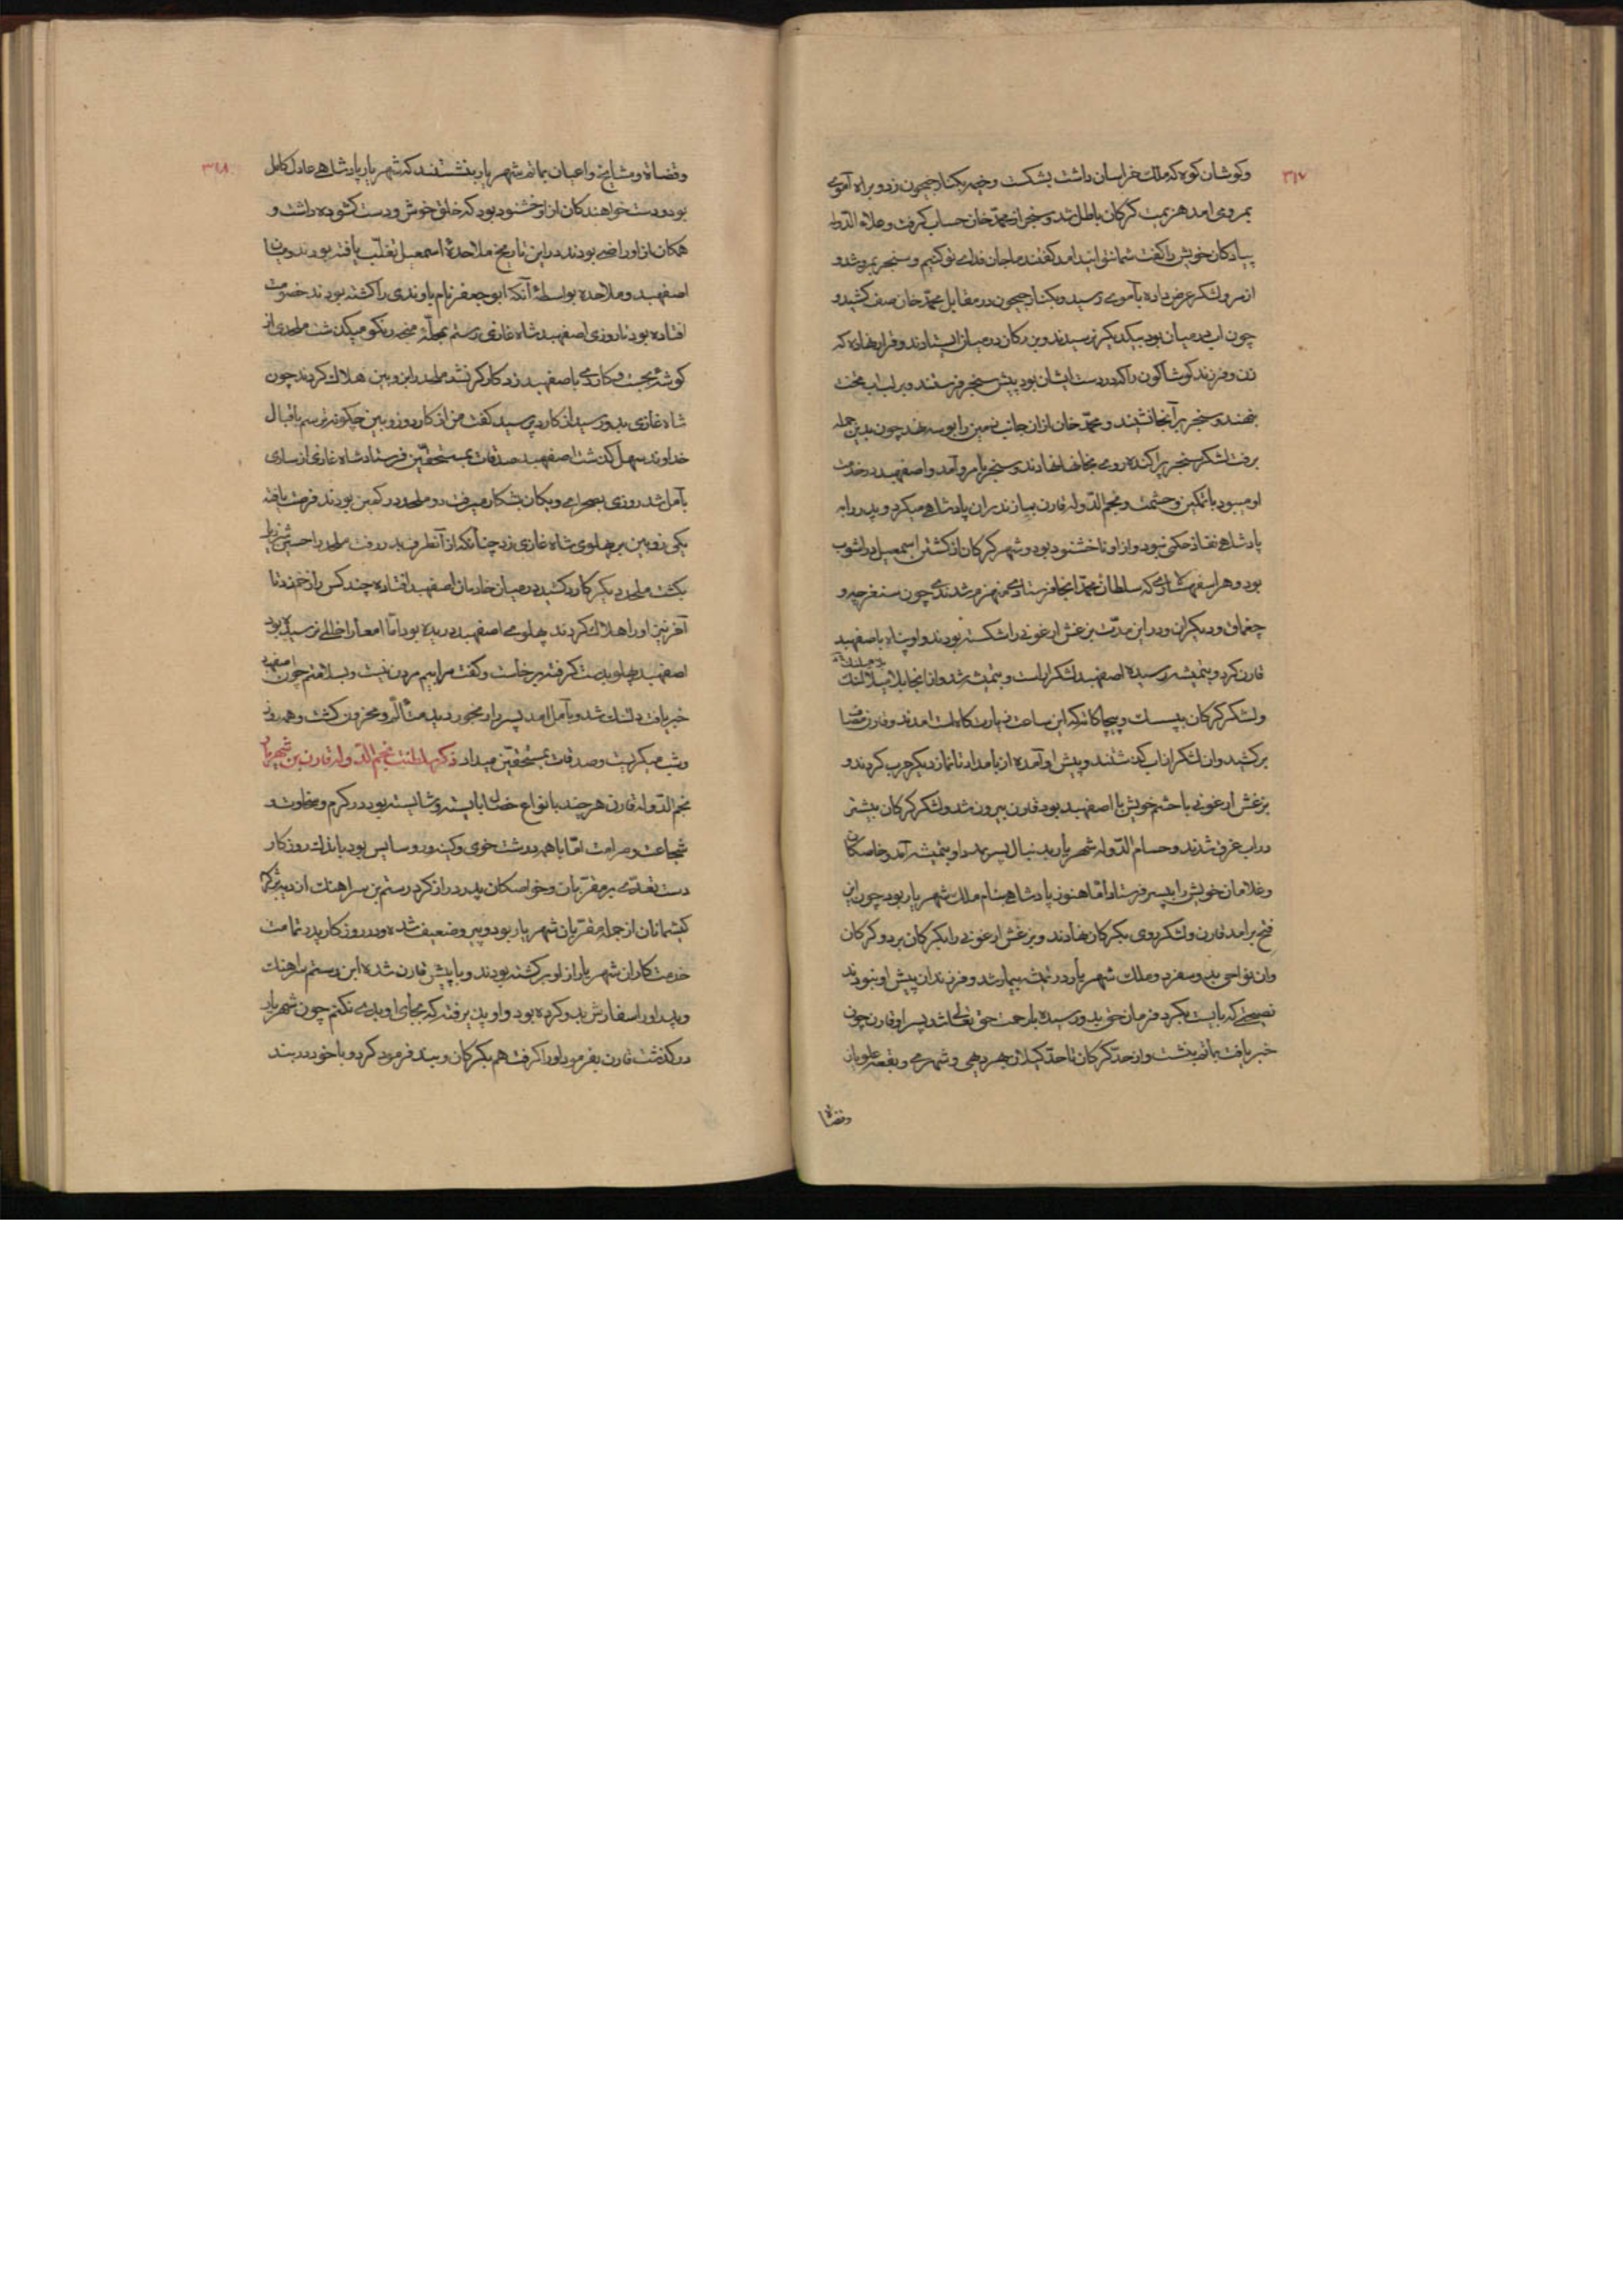 ۳۱۷
وکوشان کوه که ملک خراسان داشت بشکست و خیمه بکنار جیحون زد و براه آموی
بمروی امد هزیمت گرگان باطل شد و سنجر از محمّد خان حساب گرفت و علاء الدّوله
پیادکان خویش را گفت شما نتوانید امد گفتند ما جان فدای تو کنیم و سنجر بمرو شد و
از مرو لشکر عرض داده بآموی رسید و بکنار جیحون در مقابل محمّد خان صف کشید و
چون اب در میان بود بیکدیگر نرسیدند و بزرکان در میان ایستادند و قرار نهاده که
زن و فرزند کوشاکون را که در دست ایشان بود پیش سنجر فرستند و بر لب اب تخت
بنهند و سنجر بر آنجا نشیند و محمّد خان از ان جانب زمین را بوسه نهد چون بدین جمله
برفت لشکر سنجر پراکنده روی بخانها نهادند و سنجر با مرو آمد و اصفهبد در خدمت
او میبود با تمکین و حشمت و نجم الدّوله قارن بمازندران پادشاهی میکرد و پدر را به
پادشاهی نفاذ حکمی نبود و از او ناخشنود بود و شهر کرکان از کشتن اسمعیل در اشوب
بود و هر اسفهسالاری که سلطان محمّد انجا فرستادی منهزم شدندی چون سنقرچه و
چغماق و دیکران و در این مدّت بزغش ارغونی را شکسته بودند و او پناه باصفهبد
قارن کرد و بتمیشه رسیده اصفهبد لشکر اراست و بتمیشه شد و از انجا
ولشکر کرکان ام ساعت امدند و قارن
برکشید و ان لشکر از اب کذشتند و پیش او آمده از بامداد تا نماز دیکر حرب کردند و
بزغش ارغونی با حشم خویش با اصفهبد بود قارن بیرون شد و لشکر کرکان بیشتر
در اب غرق شدند و حسام الدّوله شهریار بدنبال پسر بمدد او بتمیشه آمد و خاصکان
وغلامان خویش را بپسر فرستاد امّا هنوز پادشاهی بنام ملک شهریار بود چون این
فتح برامد قارن و لشکر روی بکرکان نهادند و بزغش ارغونی را بکرکان برد و کرکان
وان نواحی بدو سپرد و ملک شهریار در تمیشه بیمار شد و فرزندان پیش او نبودند
نصیحتی که بایست بکرد فرمان حق بدو رسیده با رحمت حق تعالی شد و پسر او قارن چون
خبر یافت بماتم بنشست و از حدّ کرکان تا حدّ کیلان بهر دهی و شهری و بقعه علویان
وقضاة
۳۱۸
وقضاة و مشایخ و اعیان بماتم شهریار بنشستند که شهریار پادشاهی عادل کامل
بود و دست خواهندکان از او خشنود بود که خلق خوش و دست کشوده داشت و
همکان از او راضی بودند در این تاریخ ملاحدهٔ اسمعیل تغلّب یافته بودند و میان
اصفهبد و ملاحده بواسطهٔ آنکه ابو جعفر نام باوندی را کشته بودند خصومت
افتاده بود تا روزی اصفهبد شاه غازی رستم بمحلّهٔ میکذشت ملحدی از
کوشهٔ بجست و کاردی باصفهبد زد کارکر نشد ملحد را بزوبین هلاک کردند چون
شاه غازی بدو رسید از کارد پرسید گفت من از کارد و زوبین چکونه ترسم باقبال
خداوند سهل گذشت اصفهبد صدقات بمستحقّین فرستاد شاه غازی از ساری
بآمل شد روزی بصحرای و بکان بشکار میرفت دو ملحد در کمین بودند فرصت یافته
یکی زوبین بر پهلوی شاه غازی زد چنانکه از آنطرف بدر رفت ملحد را حسین
بکشت ملحد دیکر کارد کشید در میان خادمان اصفهبد افتاده چند کس را زخم زد تا
آخر نیز او را هلاک کردند پهلوی اصفهبد دریده بود امّا امعا را خللی نرسیده بود
اصفهبد پهلو بدست گرفته برخاست و گفت مرا بیم مردن نیست و بسلامتم چون اصفهبد
خبر یافت دلتنک شد و بآمل امد پسر را رنجور دید متألّم و محزون گشت و همه روز
وشب میکریست و صدقات بمستحقّین میداد ذکر سلطنت نجم الدّوله قارن بن شهریار
نجم الدّوله قارن هر چند بانواع خصال بایسته و شایسته بود در کرم و سخاوت و
شجاعت و صرامت امّا با همه درشت خوی و کینه ور و سایس بود باندک روزکار
دست تعدّی بر مقرّبان و خواصکان پدر دراز کرد رستم بن سراهنک
از جمله مقرّبان شهریار بود و پیر و ضعیف شده و در روزکار پدر تمامت
خدمتکاران شهریار از او برکشته بودند و با پیش قارن شده این رستم سراهنک
و پدر او را سفارش بدو کرده بود و او پذیرفته که بجای او بدی نکنم چون شهریار
درکذشت قارن بفرمود او را گرفت هم بکرکان و بند فرمود کرد و با خود در بند